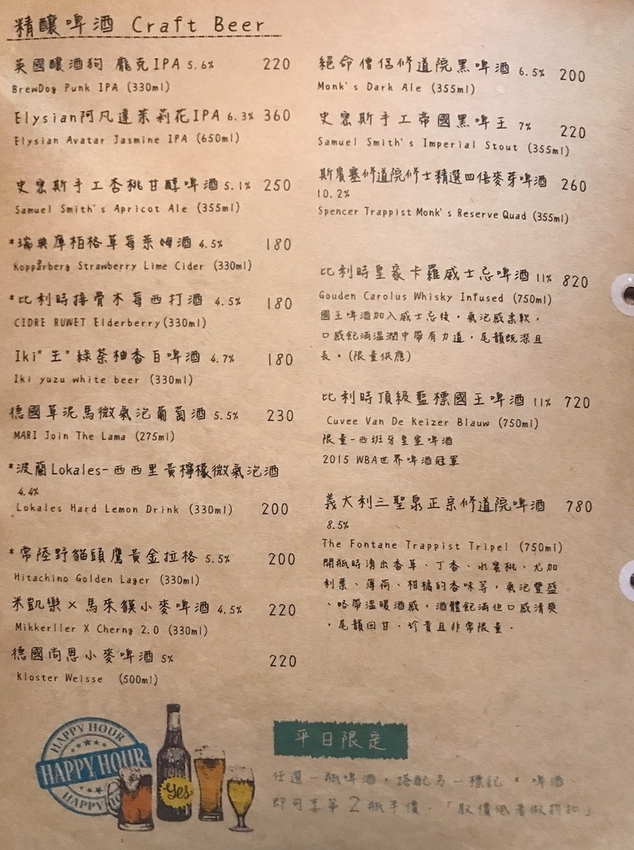 精釀啤酒 Craft Beer
英國釀酒狗 龐克IPA 5.6% 220
BrewDog Punk IPA (330ml)
Elysian阿凡達茉莉花IPA 6.3% 360
Elysian Avatar Jasmine IPA (650ml)
史密斯手工杏桃甘醇啤酒 5.1% 250
Samuel Smith's Apricot Ale (355ml)
*瑞典庫柏格草莓萊姆酒 4.5% 180
Kopparberg Strawberry Lime Cider (330ml)
*比利時接骨木莓西打酒 4.5% 180
CIDRE RUWET Elderberry(330ml)
Iki"生"綠茶柚香白啤酒 4.7% 180
Iki yuzu white beer (330ml)
德國草泥馬微氣泡葡萄酒 5.5% 230
MARI Join The Lama (275ml)
*波蘭Lokales-西西里黃檸檬微氣泡酒
4.4%
Lokales Hard Lemon Drink (330ml) 200
*常陸野貓頭鷹黃金拉格 5.5% 200
Hitachino Golden Lager (330ml)
米凱樂 X 馬來貘小麥啤酒 4.5% 220
Mikkerller X Cherng 2.0 (330ml)
德國尚恩小麥啤酒 5% 220
Kloster Weisse (500ml)
絕命僧侶修道院黑啤酒 6.5% 200
Monk's Dark Ale (355ml)
史密斯手工帝國黑啤王 7% 220
Samuel Smith's Imperial Stout (355ml)
斯賓塞修道院修士精選四倍麥芽啤酒 260
10.2%
Spencer Trappist Monk's Reserve Quad (355ml)
比利時皇家卡羅威士忌啤酒 11% 820
Gouden Carolus Whisky Infused (750ml)
國王啤酒加入威士忌後，氣泡感柔軟，
口感飽滿溫潤中帶有力道，尾韻既深且
長。(限量供應)
比利時頂級藍標國王啤酒 11% 720
Cuvee Van De Keizer Blauw (750ml)
限量-西班牙皇室啤酒
2015 WBA世界啤酒冠軍
義大利三聖泉正宗修道院啤酒 780
8.5%
The Fontane Trappist Tripel (750ml)
開瓶時湧出香草、丁香、水蜜桃、尤加
利葉、薄荷、柑橘的香味等，氣泡豐盛
，略帶溫暖酒感，酒體飽滿但口感清爽
，尾韻回甘，珍貴且非常限量。
HAPPY HOUR
HAPPY HOUR
HAPPY
Yes
平日限定
任選一瓶啤酒，搭配另一標記 * 啤酒
即可享第2瓶半價。「取價低者做折扣」